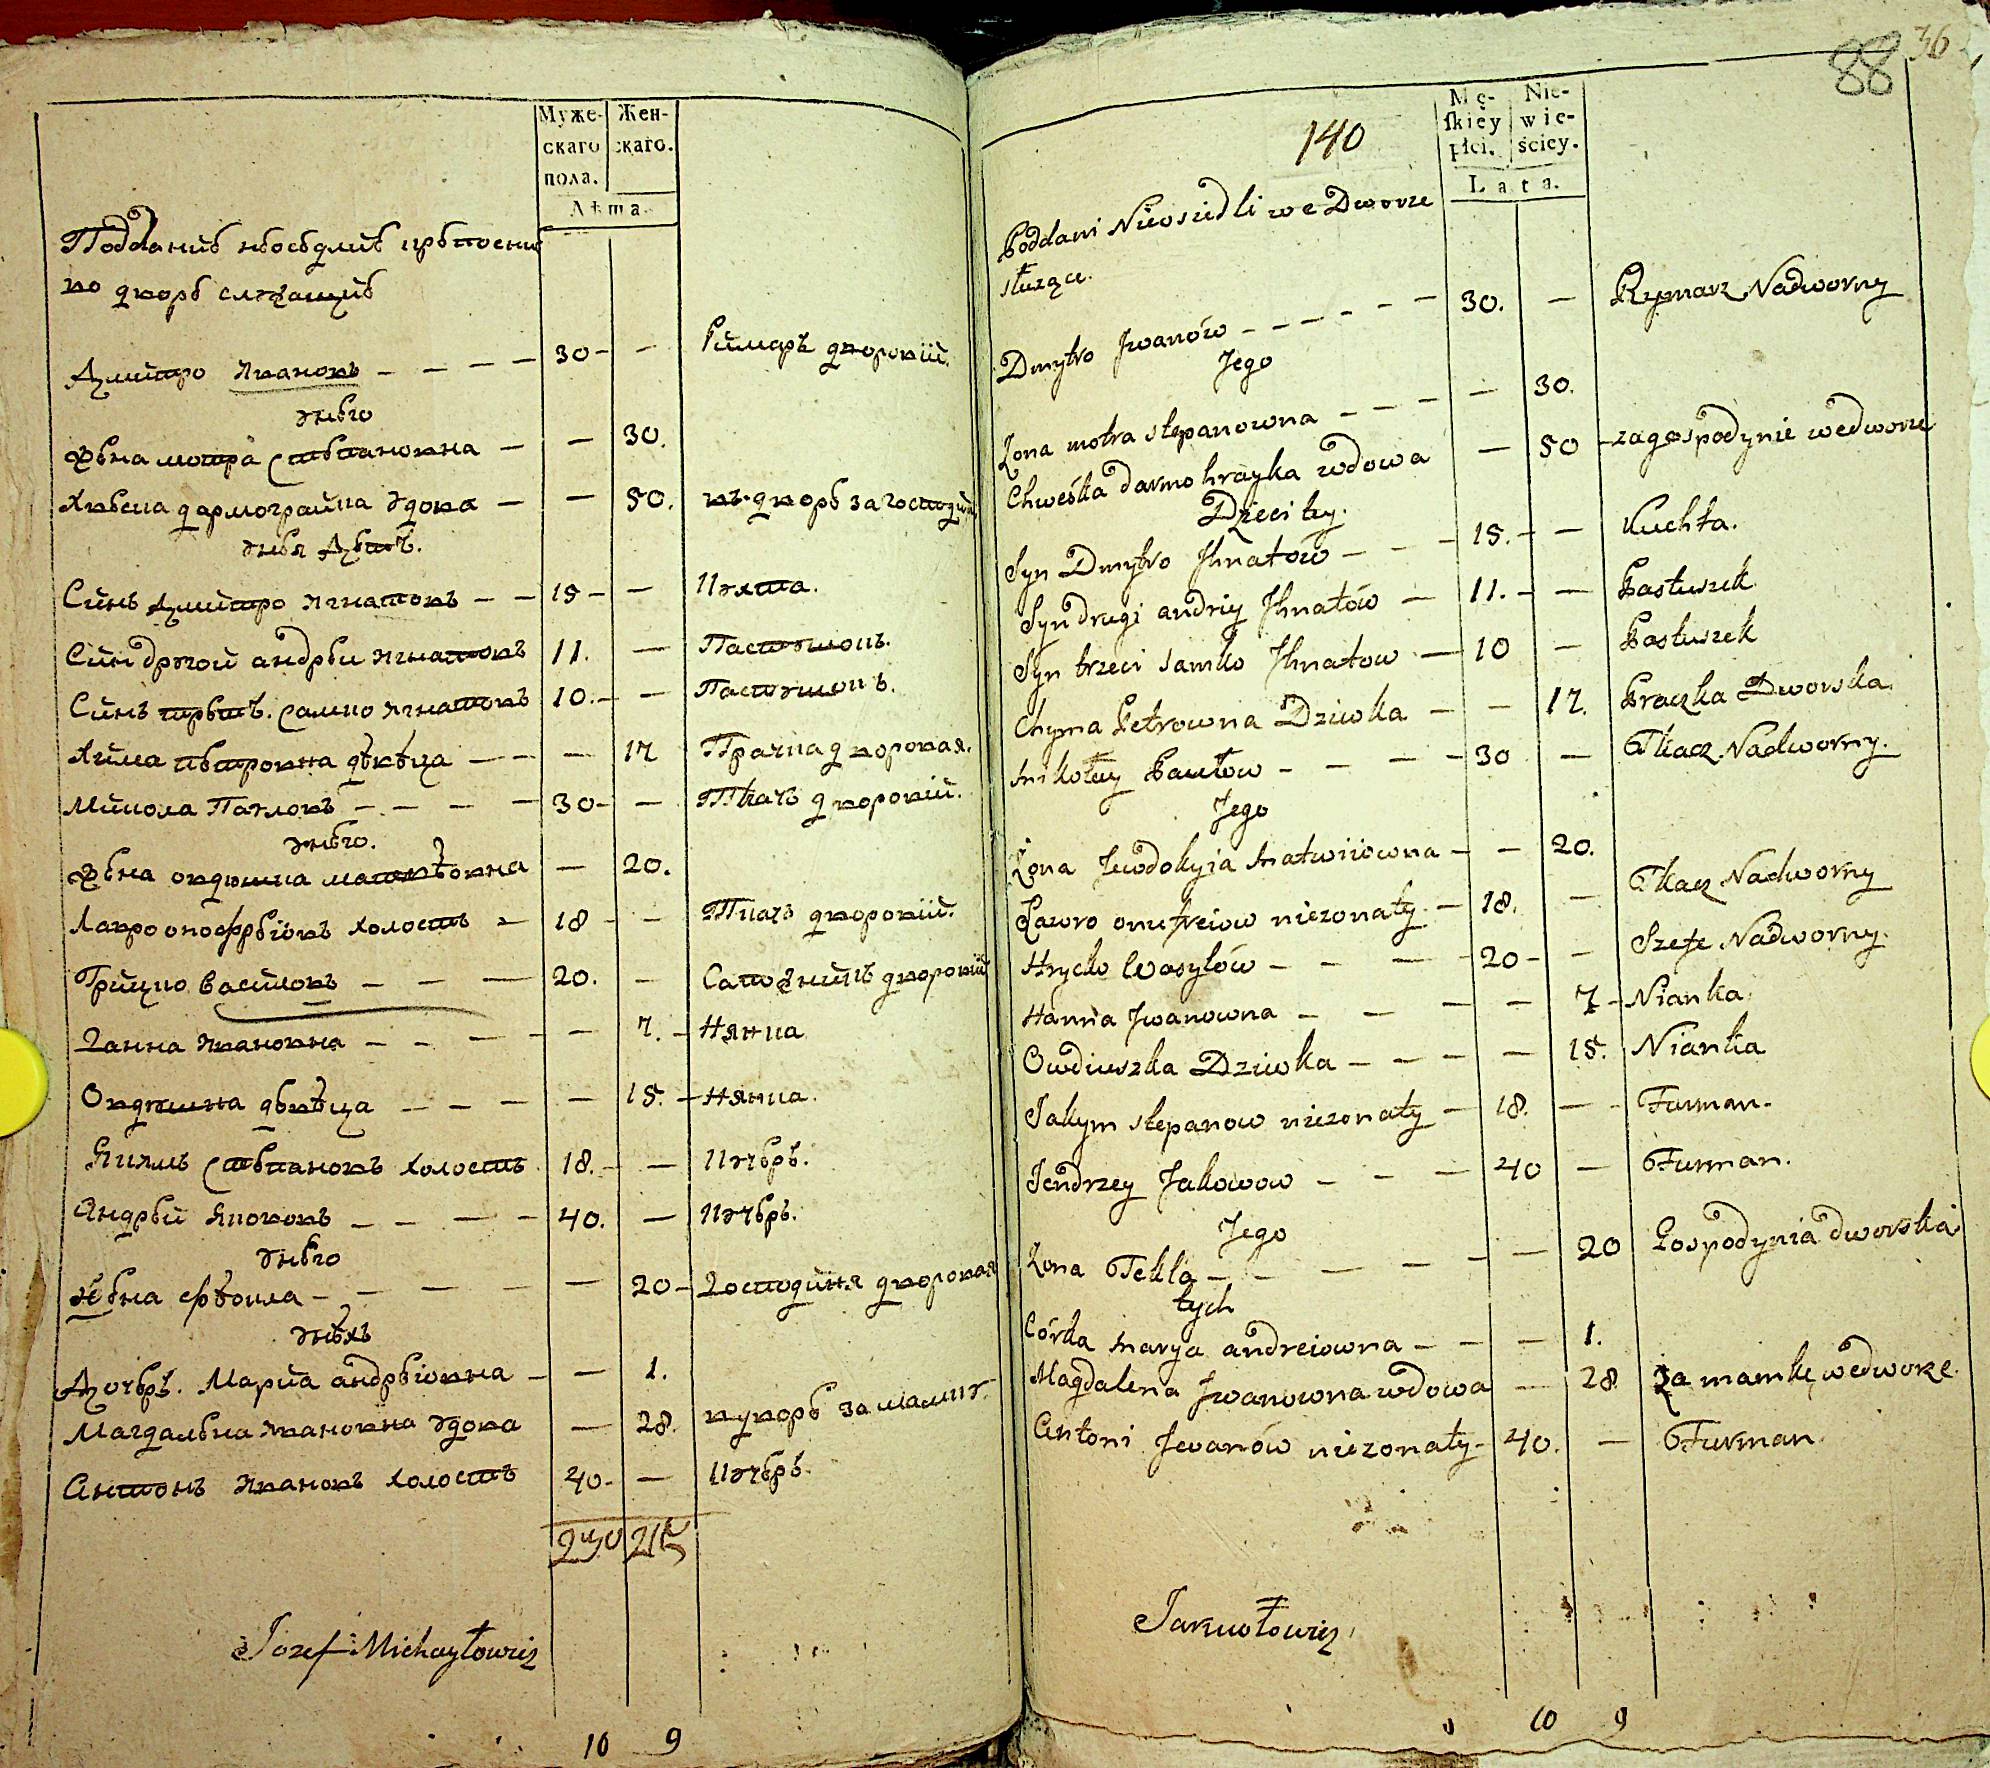 Муже-
скаго
пола.
Жен-
скаго.
Лѣта.
Подданиѣ
во дворѣ служащиѣ
Дмитро Иванокъ – – – – 30 – – Римаръ дворскій.
энѣго
Жѣна мотра Стѣпановна – – 30.
Хвѣска дармограйка вдова – – 50. въ дворѣ за господиню
энѣя Дѣтѣ.
Синъ Дмитро Игнатовъ – – 15 – – Кухта.
Синъ другой андрѣи Игнатовъ 11. – Пастушокъ.
Синъ трѣтѣ. самко Игнатовъ 10. – – Пастушокъ.
Хима пѣтровна дѣвѣца – – – 17 Прачка дворская.
Микола Павловъ – – – – 30 – – Ткачъ дворскій.
энѣго.
Жѣна овдошка матвѣовна – 20.
Лавро онофрѣіовъ холостъ – 18 – – Ткачъ дворскій.
Грицко Василовъ – – – 20. – Сапожникъ дворскій
Ганна Ивановна – – – – – 7. – Нянка
Овдюшка дѣвѣца – – – – 15. – Нянка.
Якимъ Стѣпановъ холостъ 18. – – Кучѣръ.
Андрѣй Яковов – – – – 40. – Кучѣръ.
энѣго
Жѣна ѳѣокла – – – – – 20 – Господиня дворская
энѣхъ
Дочѣръ. Мария андрѣіовна – – 1.
Магдалѣна Ивановна вдова – 28. в дворѣ за мамку.
Антонъ Ивановъ холостъ 40 – – Кучѣръ.
Jozef Michayłowicz
10 9
88 36
140
Mę-
skiey
płci.
Nie-
wie-
ściey.
Lata.
Poddani Nieosiedli we Dworze
służące.
Dmytro Jwanów – – – – – – 30. – Rymarz Nadworny
Jego
Zona motra stepanowna – – – – – 30.
Chweśka darmohrayka wdowa – 50 – za gospodynie wedworze
Dzieci tey.
Syn Dmytro Jhnatów – – – 15. – – Kuchta.
Syn drugi andriy Jhnatów – 11. – – Pastuszek
Syn trzeci samko Jhnatow – 10 – Pastuszek
Chyma Petrowna Dziwka – – 17. Praczka Dworska.
Mikołay Pawłow – – – – 30 – Tkacz Nadworny.
Jego
Zona Jewdokyia Matwiiowna – – 20.
Ławro onufreiow niezonaty – 18. – Tkacz Nadworny
Hrycko Wasylów – – – – 20 – – Szefc Nadworny.
Hanna Jwanowna – – – – – 7 – Nianka.
Owdiuszka Dziwka – – – – – 15. Nianka
Jakym stepanow niezonaty – 18. – – Furman.
Jendrzey Jakowow – – – 40 – Furman.
Jego
Zona Tekla – – – – – – 20 Gospodynia dworska
tych
Córka Marya andreiowna – – – 1.
Magdalena Jwanowna wdowa – 28 Za mamkę wedworze.
Antoni Jwanów niezonaty – 40. – Furman
10 9